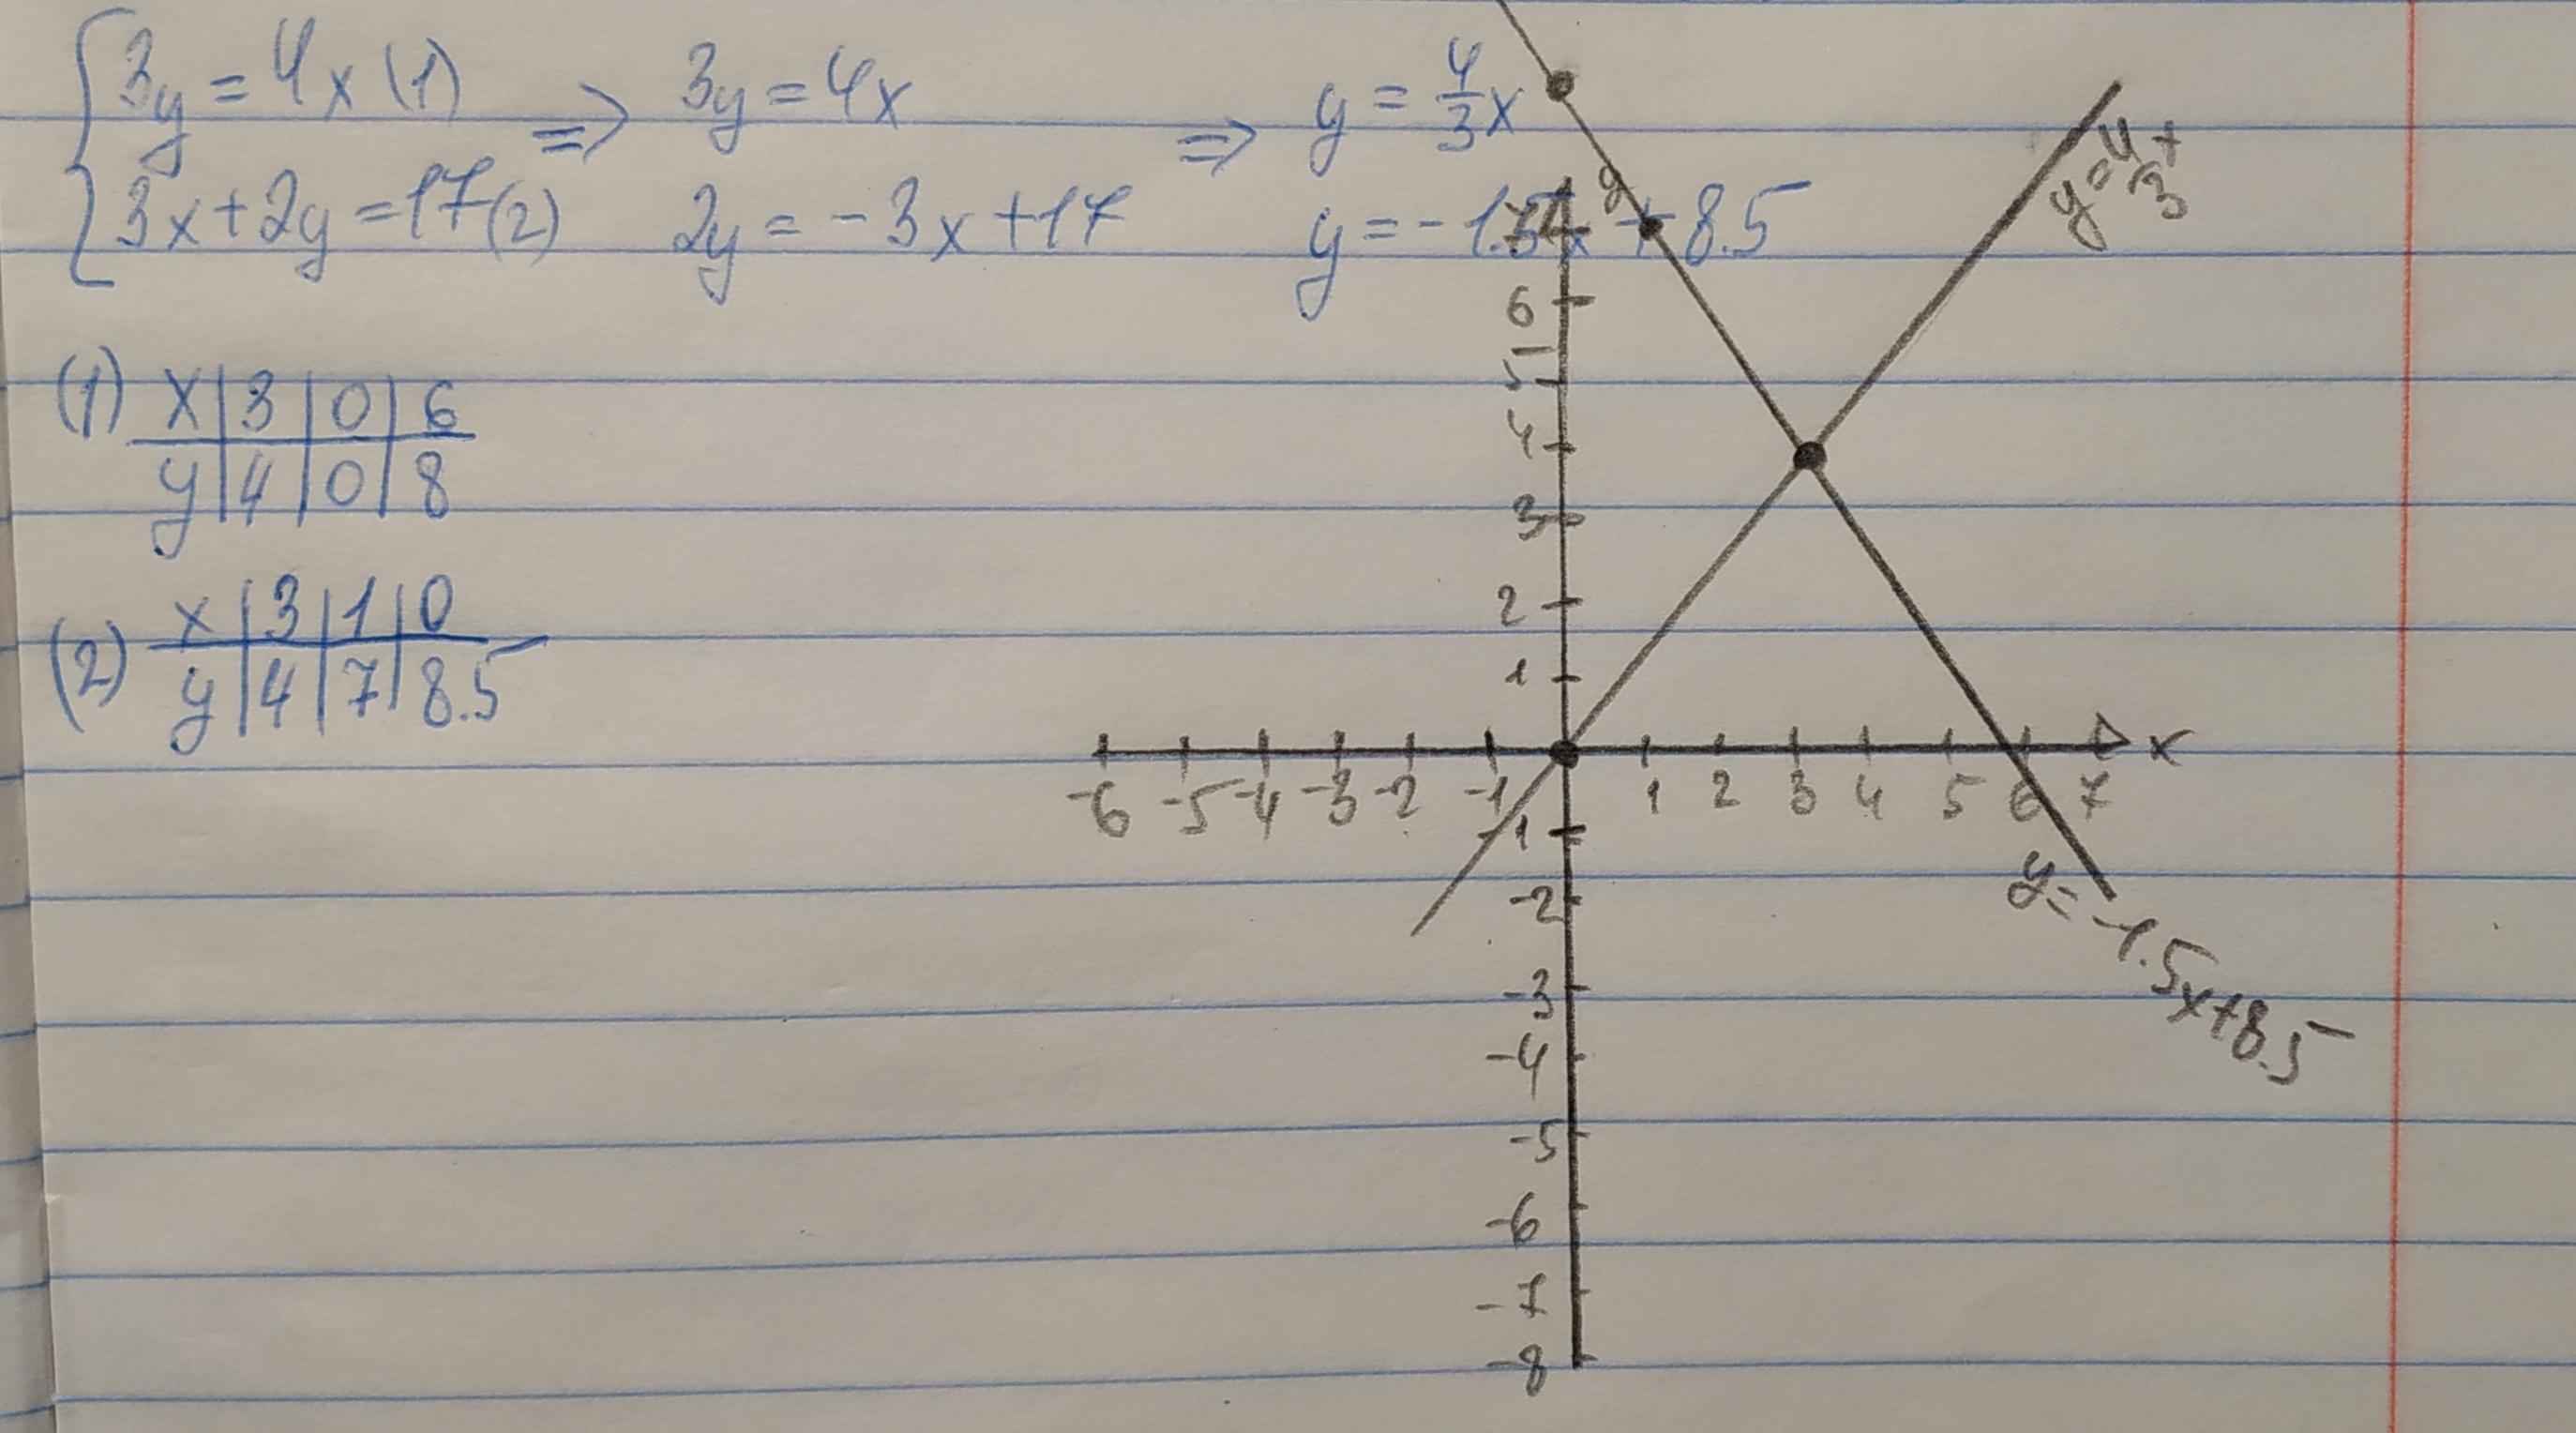 3y = 4x (1) => 3y = 4x => y = 4/3 x
3x + 2y = 17 (2) 2y = -3x + 17 y = -1.5x + 8.5
(1) x | 3 | 0 | 6
y | 4 | 0 | 8
(2) x | 3 | 1 | 0
y | 4 | 7 | 8.5
y
7
6
5
4
3
2
1
-6 -5 -4 -3 -2 -1 1 2 3 4 5 6 7 x
-1
-2
-3
-4
-5
-6
-7
-8
y = 4/3 x
y = -1.5x + 8.5